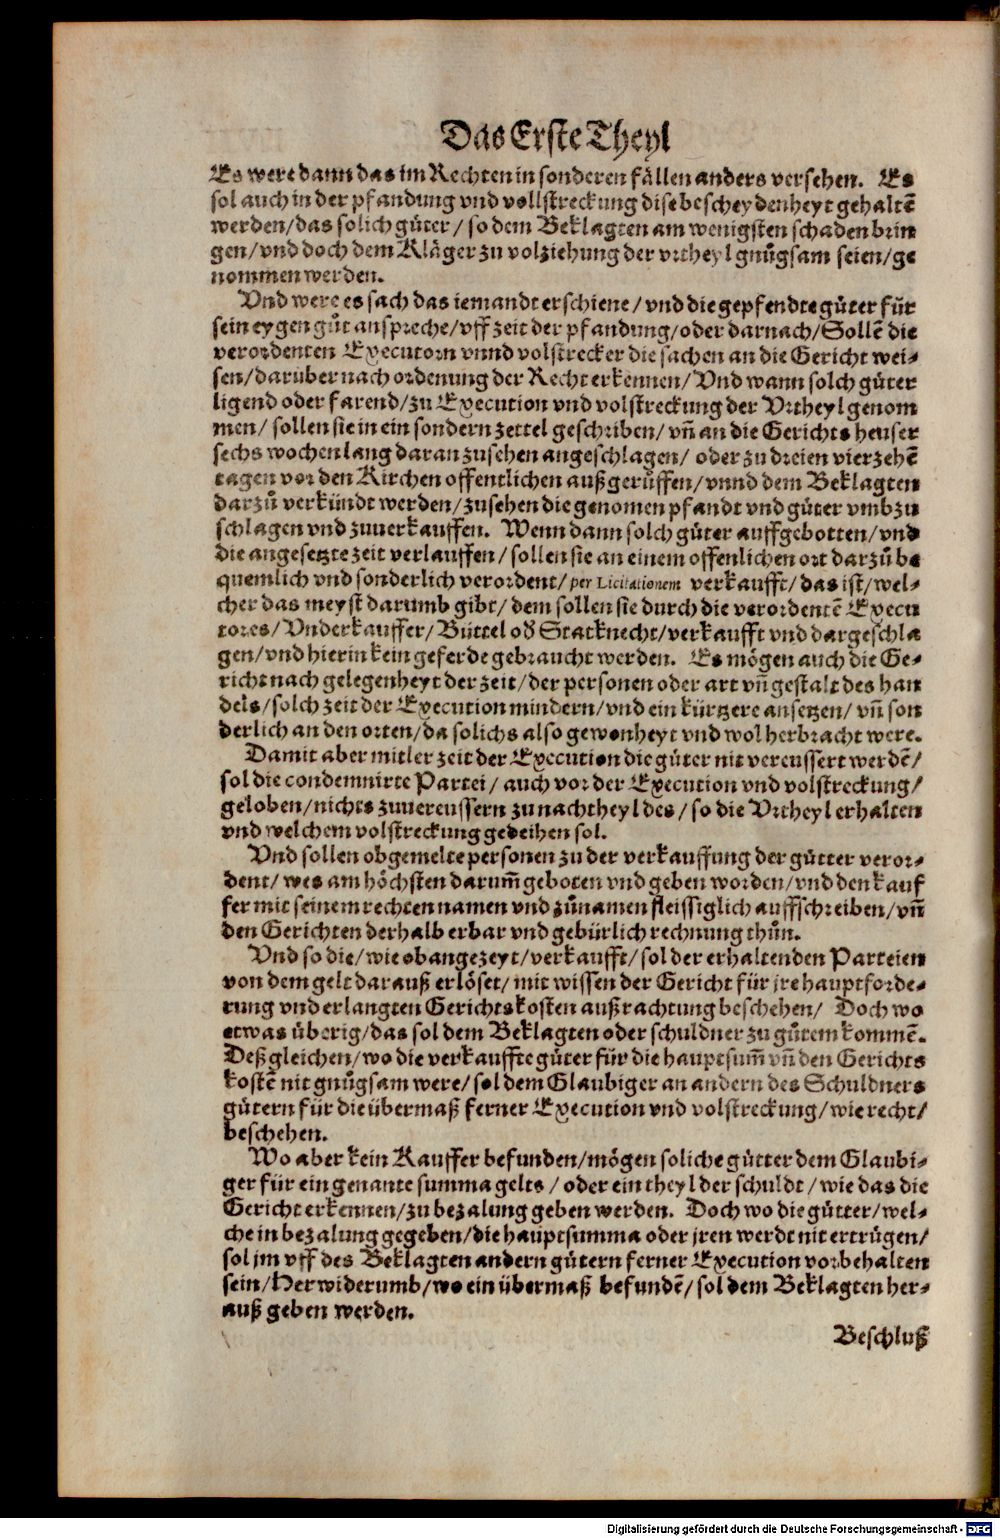 Das Erste Theyl
Es were dann das im Rechten in sonderen fällen anders versehen. Es
sol auch in der pfandung vnd vollstreckung dise bescheydenheyt gehaltē
werden/das solich güter/ so dem Beklagten am wenigsten schaden brin
gen/vnd doch dem Kläger zu volziehung der vrtheyl gnůgsam seien/ge
nommen werden.
Vnd were es sach das iemandt erschiene/vnd die gepfendte güter für
sein eygen gůt anspreche/vff zeit der pfandung/oder darnach/Sollē die
verordenten Executorn vnnd volstrecker die sachen an die Gericht wei⸗
sen/darüber nach ordenung der Recht erkennen/Vnd wann solch güter
ligend oder farend/zu Execution vnd volstreckung der Vrtheyl genom
men/ sollen sie in ein sondern zettel geschriben/vñ an die Gerichts heuser
sechs wochen lang daran zusehen angeschlagen/ oder zu dreien vierzehē
tagen vor den Kirchen offentlichen außgerüffen/vnnd dem Beklagten
darzů verkündt werden/zusehen die genomen pfandt vnd güter vmbzu
schlagen vnd zuuerkauffen. Wenn dann solch güter auffgebotten/vnd
die angesetzte zeit verlauffen/sollen sie an einem offenlichen ort darzů be
quemlich vnd sonderlich verordent/per Licitationem verkaufft/das ist/wel⸗
cher das meyst darumb gibt/dem sollen sie durch die verordentē Execu
tores/Vnderkauffer/Büttel od' Statknecht/verkaufft vnd dargeschla
gen/vnd hierin kein geferde gebraucht werden. Es mögen auch die Ge⸗
richt nach gelegenheyt der zeit/der personen oder art vñ gestalt des han
dels/solch zeit der Execution mindern/vnd ein kürtzere ansetzen/vñ son
derlich an den orten/da solichs also gewonheyt vnd wol herbracht were.
Damit aber mitler zeit der Execution die güter nit vereussert werdē/
sol die condemnirte Partei/auch vor der Execution vnd volstreckung/
geloben/nichts zuuereussern zu nachtheyl des/so die Vrtheyl erhalten
vnd welchem volstreckung gedeihen sol.
Vnd sollen obgemelte personen zu der verkauffung der gütter veror⸗
dent/wes am höchsten darum̃ geboten vnd geben worden/vnd den kauf
fer mit seinem rechten namen vnd zůnamen fleissiglich auffschreiben/vñ
den Gerichten derhalb erbar vnd gebürlich rechnung thůn.
Vnd so die/wie obangezeyt/verkaufft/sol der erhaltenden Parteien
von dem gelt darauß erlöset/mit wissen der Gericht für jre hauptforde⸗
rung vnd erlangten Gerichtskosten außrachtung beschehen/ Doch wo
etwas überig/das sol dem Beklagten oder schuldner zu gůtem kommē.
Deßgleichen/wo die verkauffte güter für die hauptsum̃ vñ den Gerichts
kostē nit gnůgsam were/sol dem Glaubiger an andern des Schuldners
gütern für die übermaß ferner Execution vnd volstreckung/wie recht/
beschehen.
Wo aber kein Kauffer befunden/mögen soliche gütter dem Glaubi⸗
ger für ein genante summa gelts/oder ein theyl der schuldt/wie das die
Gericht erkennen/zu bezalung geben werden. Doch wo die gütter/wel⸗
che in bezalung gegeben/die hauptsumma oder jren werdt nit ertrügen/
sol jm vff des Beklagten andern gütern ferner Execution vorbehalten
sein/Herwiderumb/wo ein übermaß befundē/sol dem Beklagten her⸗
auß geben werden.
Beschluß
Digitalisierung gefördert durch die Deutsche Forschungsgemeinschaft - DFG